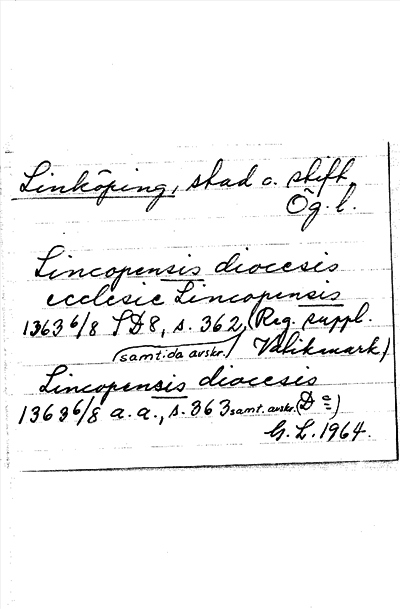 Linköping, stad o. stift
Ög. l.
Lincopensis diocesis
ecclesie Lincopensis
1363 6/8 SD8, s. 362, (Reg. suppl.
(samtida avskr.) Vatikanark)
Lincopensis diocesis
1363 6/8 a.a., s. 363 samt. avskr. (D:o)
G. L. 1964.